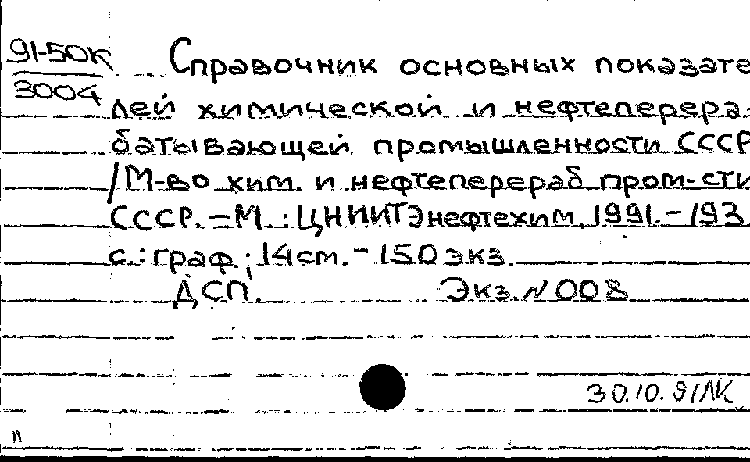 91-50К
3004
Справочник основных показате
лей химической и нефтеперера
батывающей промышленности СССР
/М-во хим. и нефтеперераб. пром-сти
СССР. – М. : ЦНИИТЭнефтехим, 1991. – 193
с. : граф ; 14 см. – 150 экз.
ДСП. Экз. N 008
30.10.91 ЛК
п